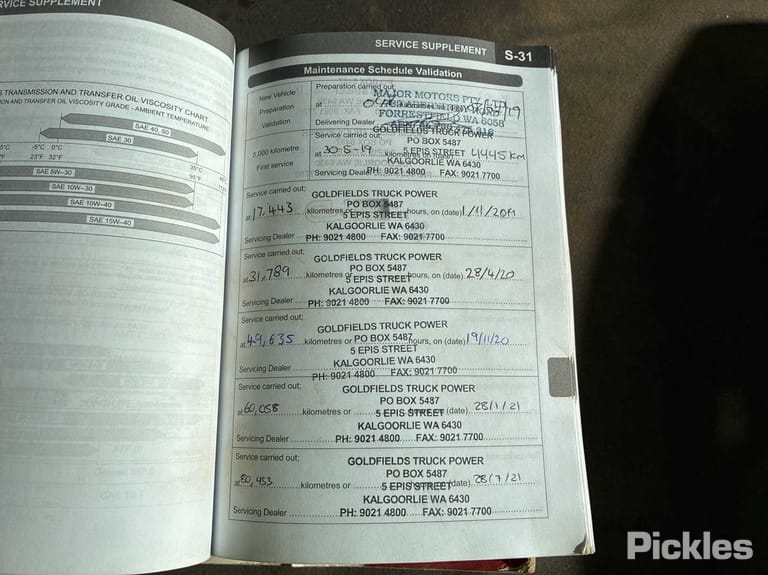 SERVICE SUPPLEMENT
TRANSMISSION AND TRANSFER OIL VISCOSITY CHART
ION AND TRANSFER OIL VISCOSITY GRADE - AMBIENT TEMPERATURE
SAE 40, 50
SAE 30
-5°C 0°C 35°C
23°F 32°F 95°F
SAE 5W–30
SAE 10W–30
SAE 10W–40
SAE 15W–40
SERVICE SUPPLEMENT S-31
Maintenance Schedule Validation
New Vehicle Preparation Validation
Preparation carried out;
at
MAJOR MOTORS PTY LTD
FORRESTFIELD WA 6058
Delivering Dealer
5,000 kilometre First service
Service carried out;
GOLDFIELDS TRUCK POWER
PO BOX 5487
at 30-5-19 kilometres on 4445km
5 EPIS STREET
KALGOORLIE WA 6430
Servicing Dealer PH: 9021 4800 FAX: 9021 7700
Service carried out;
GOLDFIELDS TRUCK POWER
PO BOX 5487
at 17,443 kilometres or hours, on (date) 1/11/2019
5 EPIS STREET
KALGOORLIE WA 6430
Servicing Dealer PH: 9021 4800 FAX: 9021 7700
Service carried out;
GOLDFIELDS TRUCK POWER
PO BOX 5487
at 31,789 kilometres or hours, on (date) 28/4/20
5 EPIS STREET
KALGOORLIE WA 6430
Servicing Dealer PH: 9021 4800 FAX: 9021 7700
Service carried out;
GOLDFIELDS TRUCK POWER
PO BOX 5487
at 49,635 kilometres or hours, on (date) 19/11/20
5 EPIS STREET
KALGOORLIE WA 6430
Servicing Dealer PH: 9021 4800 FAX: 9021 7700
Service carried out;
GOLDFIELDS TRUCK POWER
PO BOX 5487
at 60,058 kilometres or (date) 28/1/21
5 EPIS STREET
KALGOORLIE WA 6430
Servicing Dealer PH: 9021 4800 FAX: 9021 7700
Service carried out;
GOLDFIELDS TRUCK POWER
PO BOX 5487
at 80,453 kilometres or (date) 28/7/21
5 EPIS STREET
KALGOORLIE WA 6430
Servicing Dealer PH: 9021 4800 FAX: 9021 7700
Pickles